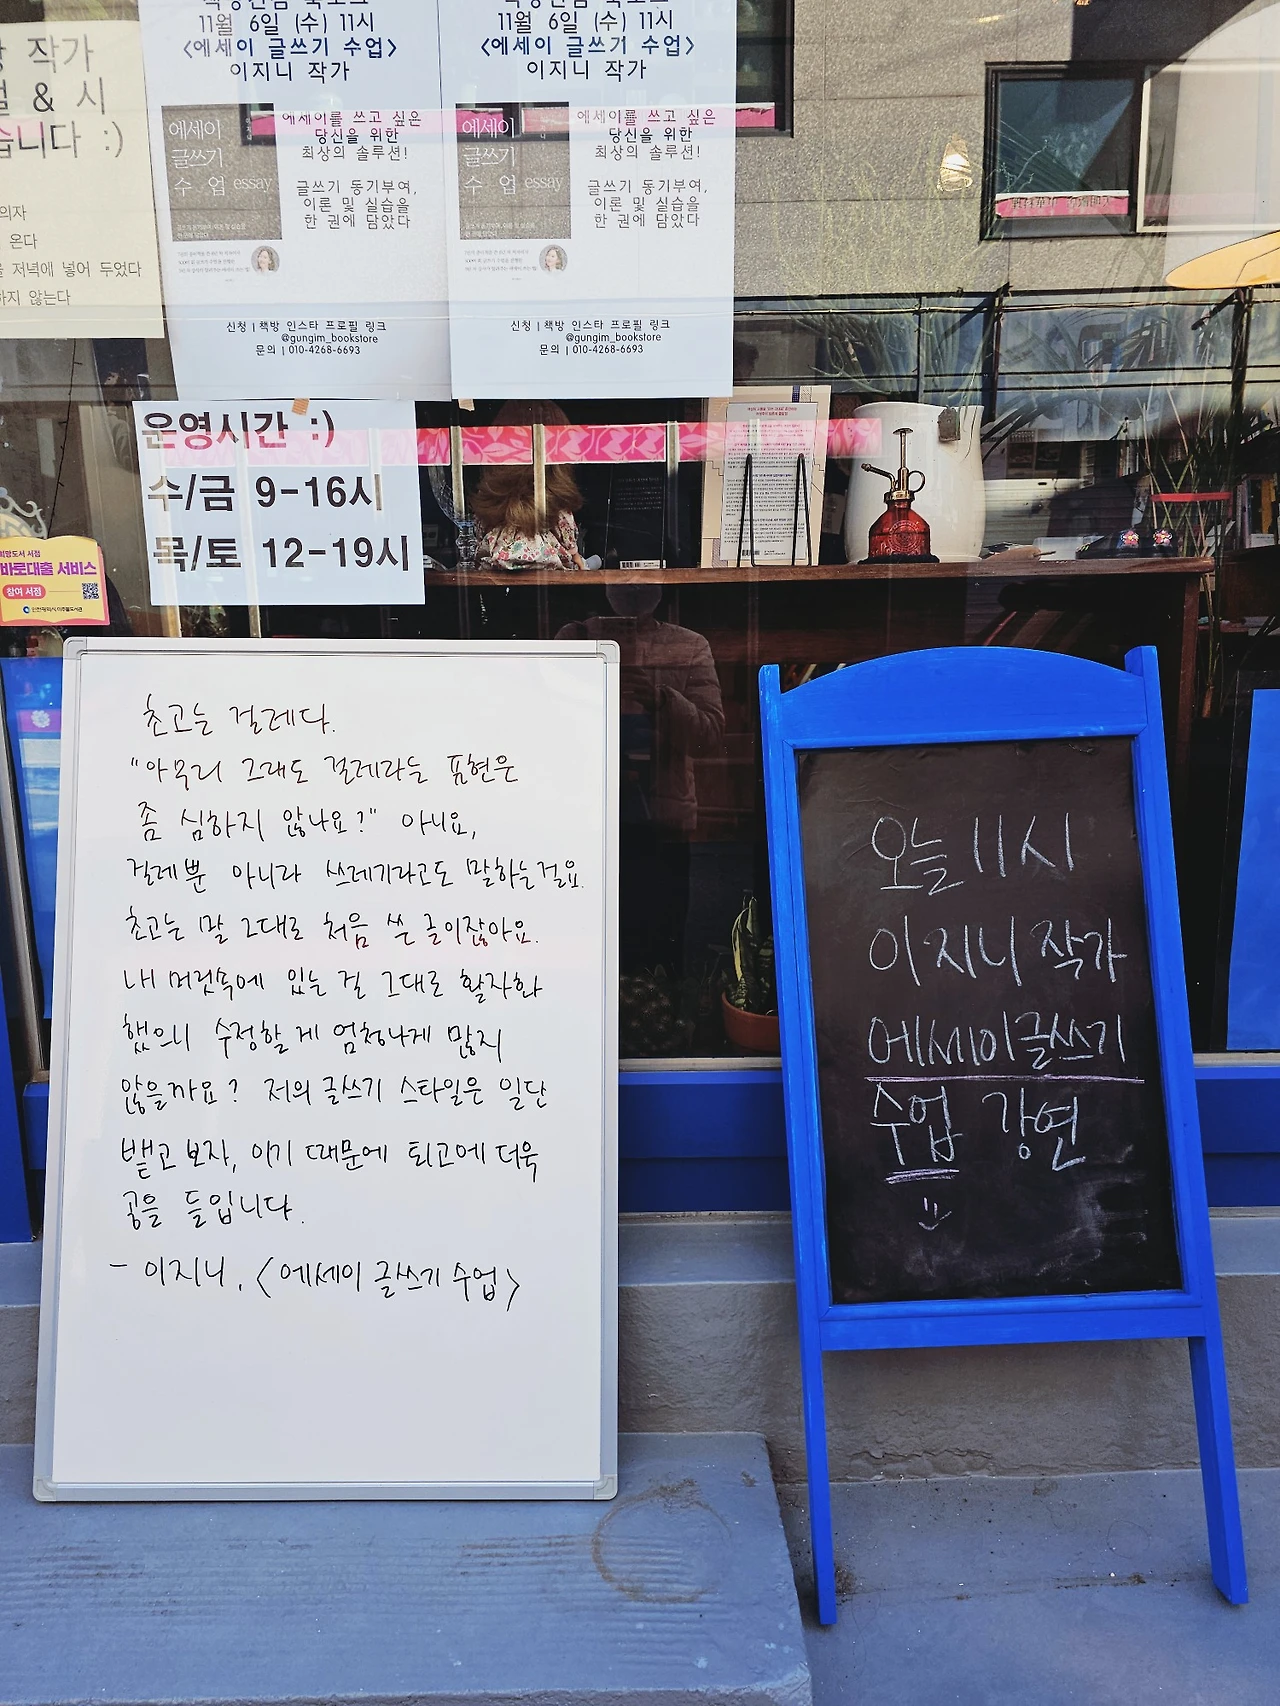 작가
& 시
습니다 :)
의자
온다
저녁에 넣어 두었다
하지 않는다
11월 6일 (수) 11시
<에세이 글쓰기 수업>
이지니 작가
에세이
글쓰기
수 업 essay
에세이를 쓰고 싶은
당신을 위한
최상의 솔루션!
글쓰기 동기부여,
이론 및 실습을
한 권에 담았다
신청 | 책방 인스타 프로필 링크
@gungim_bookstore
문의 | 010-4268-6693
11월 6일 (수) 11시
<에세이 글쓰기 수업>
이지니 작가
에세이
글쓰기
수 업 essay
에세이를 쓰고 싶은
당신을 위한
최상의 솔루션!
글쓰기 동기부여,
이론 및 실습을
한 권에 담았다
신청 | 책방 인스타 프로필 링크
@gungim_bookstore
문의 | 010-4268-6693
운영시간 :)
수/금 9-16시
목/토 12-19시
희망도서 서점
바로대출 서비스
참여 서점
초고는 걸레다.
"아무리 그래도 걸레라는 표현은
좀 심하지 않나요?" 아니요,
걸레뿐 아니라 쓰레기라고도 말하는걸요.
초고는 말 그대로 처음 쓴 글이잖아요.
내 머릿속에 있는 걸 그대로 활자화
했으니 수정할 게 엄청나게 많지
않을까요? 저의 글쓰기 스타일은 일단
뱉고 보자, 이기 때문에 퇴고에 더욱
공을 들입니다.
- 이지니, <에세이 글쓰기 수업>
오늘 11시
이지니 작가
에세이글쓰기
수업 강연